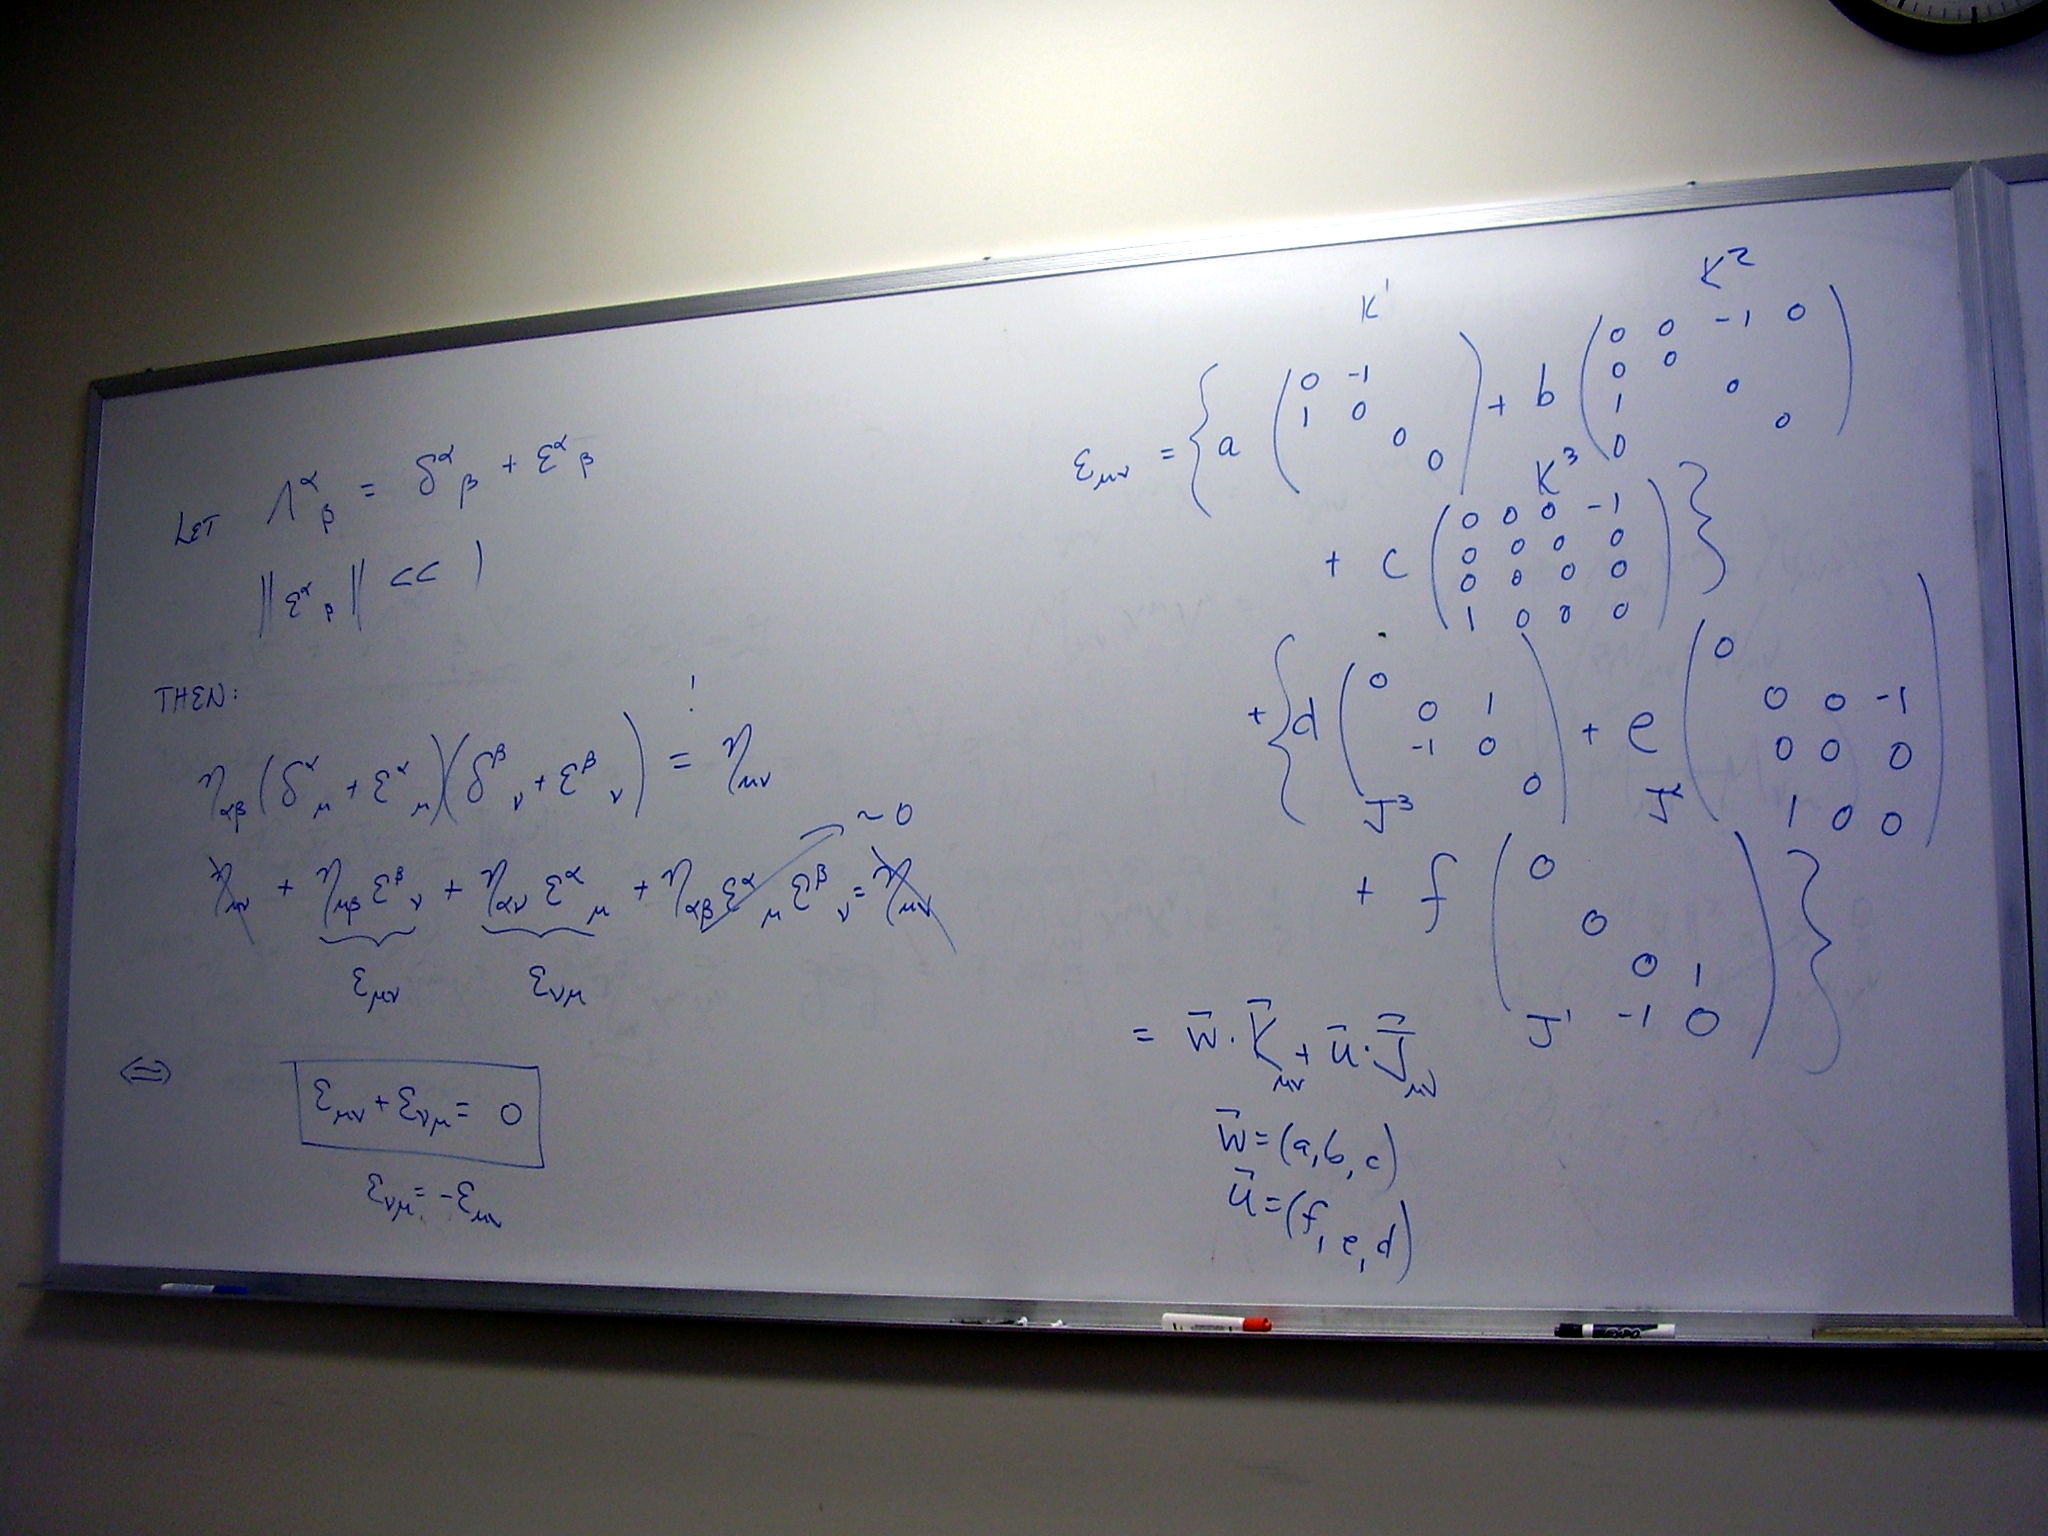 LET Λ^α_β = δ^α_β + ε^α_β
||ε^α_β|| << 1
THEN:
η_αβ (δ^α_μ + ε^α_μ)(δ^β_ν + ε^β_ν) =! η_μν
η_μν + η_μβ ε^β_ν + η_αν ε^α_μ + η_αβ ε^α_μ ε^β_ν = η_μν
~ 0
ε_μν ε_νμ
⇔ ε_μν + ε_νμ = 0
ε_νμ = -ε_μν
K^1 K^2
ε_μν = { a ( 0 -1
1 0
0
0 ) + b ( 0 0 -1 0
0 0
1 0
0 0 )
K^3
+ c ( 0 0 0 -1
0 0 0 0
0 0 0 0
1 0 0 0 ) }
+ { d ( 0
0 1
-1 0
0 ) + e ( 0
0 0 -1
0 0 0
1 0 0 )
J^3 J^2
+ f ( 0
0
0 1
-1 0 ) }
J^1
= w⃗ · K⃗_μν + u⃗ · J⃗_μν
w⃗ = (a, b, c)
u⃗ = (f, e, d)
EXPO